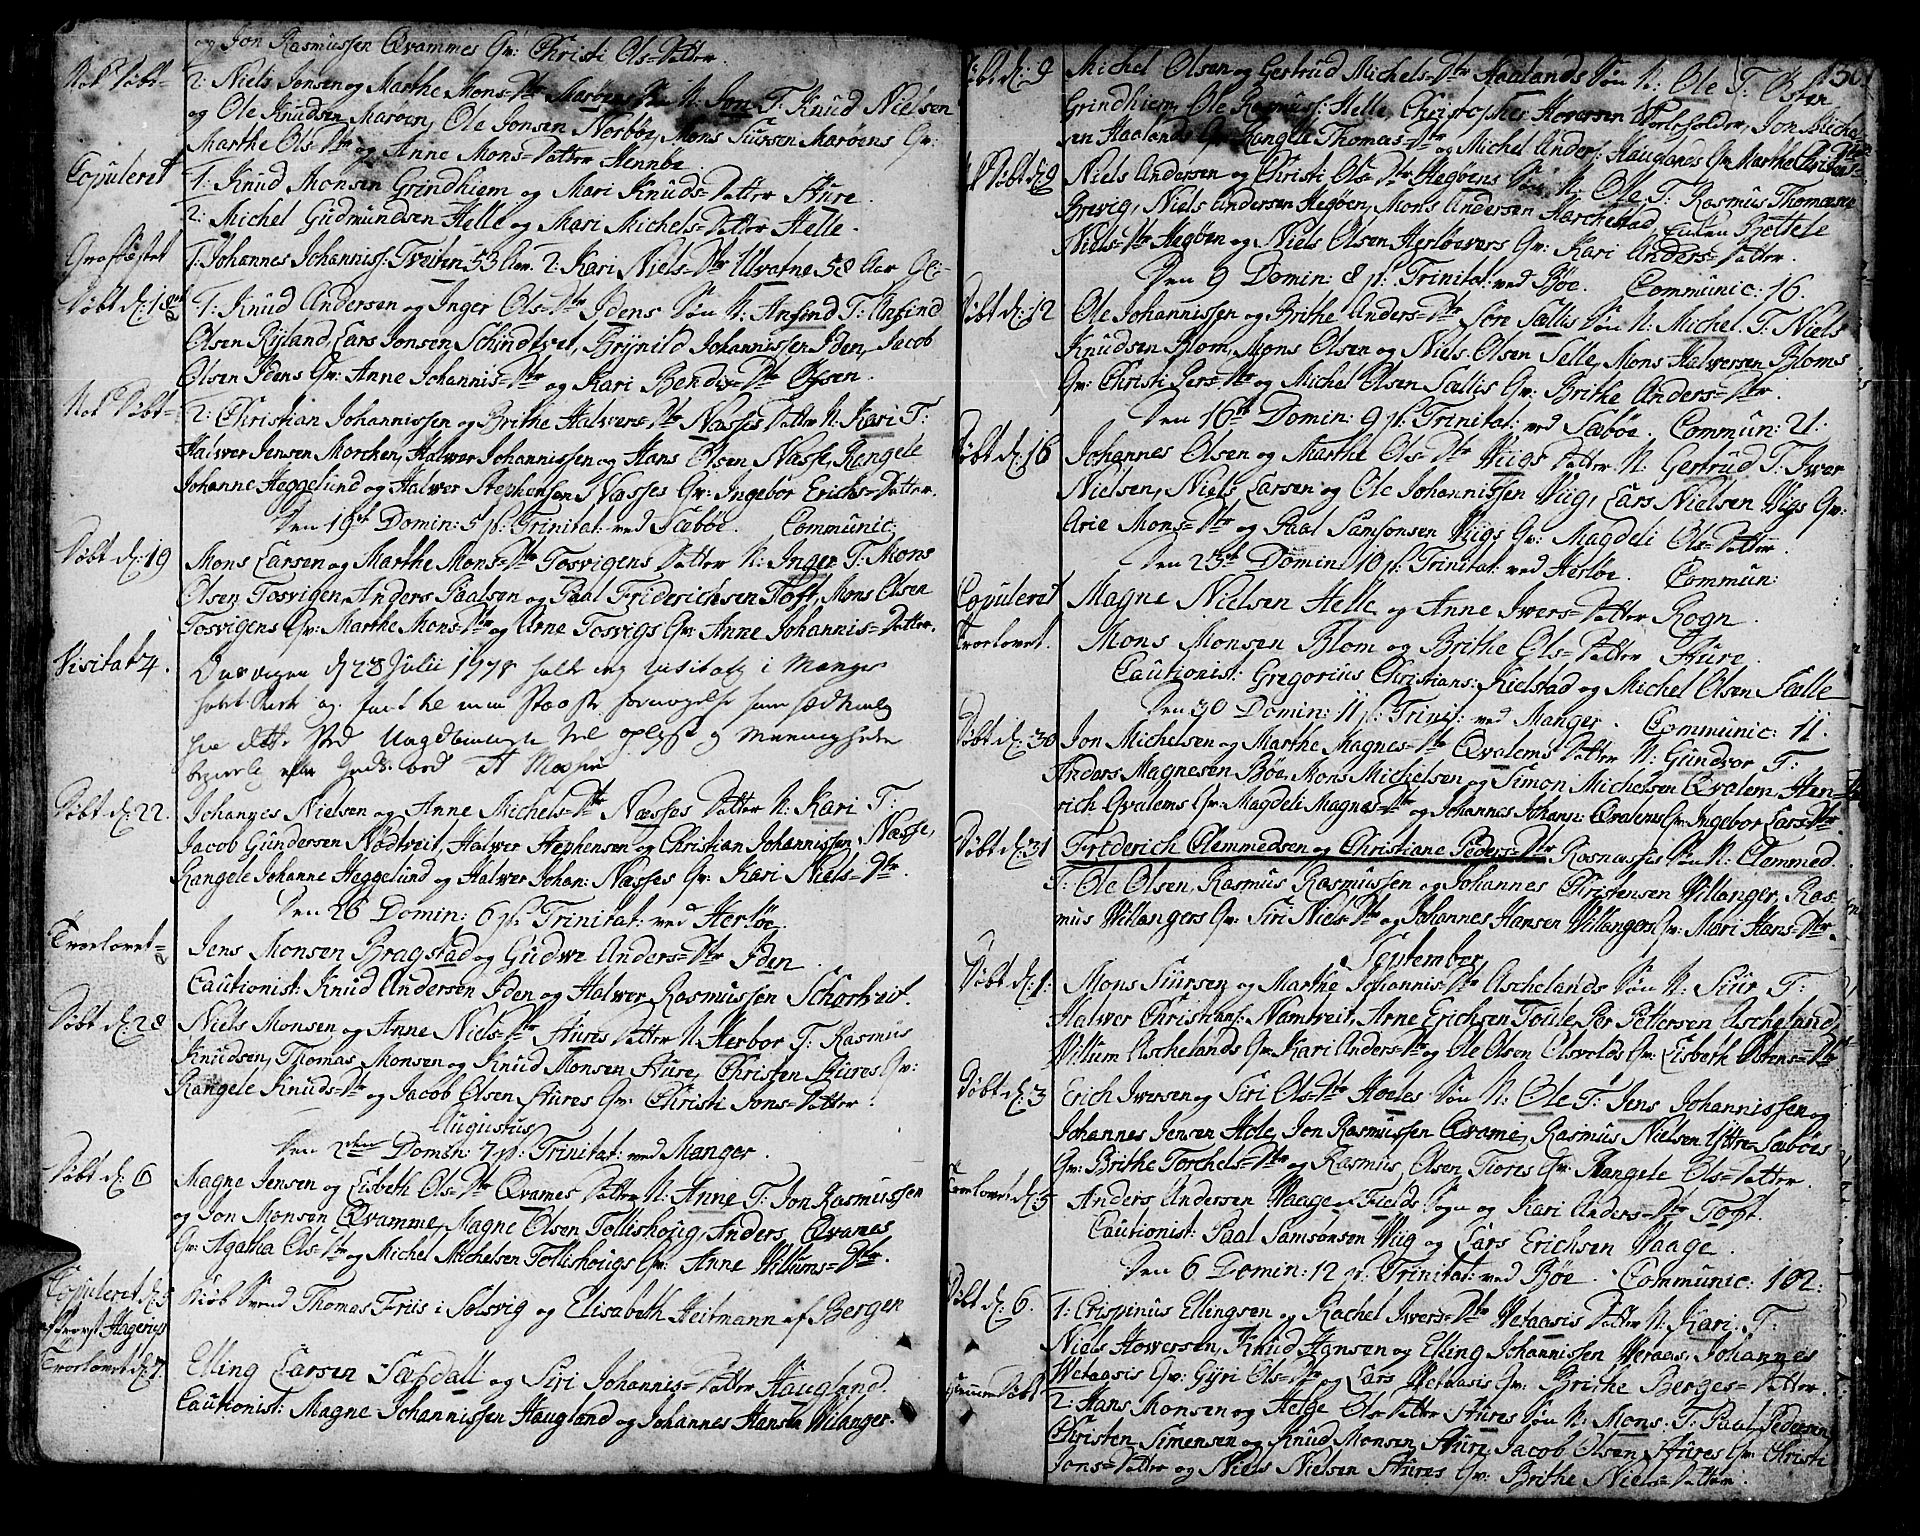 og Jon Rasmussen Qvammes Qv: Christi Ols=Datter.
Nok Døbt= 2: Niels Jonsen og Marthe Mons=Dtr Marøens Søn N: Jon T: Knud Nielsen
og Ole Knudsen Marøen, Ole Jonsen Norbøe, Mons Siursen Marøens Qv:
Marthe Ols=Dtr og Anne Mons=Datter Hennøe
Copuleret 1: Knud Monsen Grindhiem og Mari Knuds=Datter Sture.
2: Michel Gudmundsen Helle og Mari Michels=Datter Helle.
Grafæstet 1: Johannes Johannis: Tveiten 53 Aar. 2: Kari Niels=Dtr Uvatne 58 Aar
Døbt d: 18 1: Knud Andersen og Inger Ols=Dtr Idens Søn N: Ansind T: Ansind
Olsen Ryland, Lars Jonsen Schindtvet, Brynild Johannissen Iden, Jacob
Olsen Idens Qv: Anne Johannis=Dtr og Kari Bendix=Dtr
Nok Døbt= 2: Christian Johannissen og Brithe Halvers=Dtr Næsses Datter N: Kari T:
Halver Jensen Morchen, Halver Johannissen og Hans Olsen Næsse, Rengele
Johanne Heggelund og Halwer Stephensen Næsses Qv: Ingebor Erichs=Datter.
Den 19de Domin: 5 p: Trinitat: ved Sæbøe. Communic:
Døbt d: 19 Mons Larsen og Marthe Mons=Dtr Tosvigens Datter N: Inger T: Mons
Olsen Tosvigen, Anders Paalsen og Paal Friderichsen Toft, Mons Olsen
Tosvigens Qv: Marthe Mons=Dtr og Arne Tosvigs Qv: Anne Johannis=Datter.
Visitatz. d 28 Julii 1778 holt jeg visitatz i Manger
Døbt d: 22. Johannes Nielsen og Anne Michels=Dtr Næsses Datter N: Kari T:
Jacob Gundersen Nødtveit, Halwer Stephensen og Christian Johannissen Næsse,
Rangele Johanne Heggelund og Halwer Johan: Næsses Qv: Kari Niels=Dtr.
Den 26 Domin: 6 p: Trinitat: ved Herløe.
Trorlovet= Jens Monsen Bragstad og Gudwe Anders=Dtr Iden.
Cautionist: Knud Andersen Iden og Halwer Rasmussen Schortveit.
Døbt d: 28 Niels Monsen og Anne Niels=Dtr Stures Datter N: Herbor T: Rasmus
Knudsen, Thomas Monsen og Knud Monsen Sture, Christen Stures Qv:
Rangele Knuds=Dtr og Jacob Olsen Stures Qv: Christi Jons=Datter.
Augustus
Den 2den Domin: 7 p: Trinitat: ved Manger.
Døbt d: 6 Magne Jensen og Lisbeth Ols=Dtr Qvames Datter N: Anne T: Jon Rasmussen
og Jon Monsen Qvamme, Magne Olsen Tolleshoug, Anders Qvames
Qv: Agatha Ols=Dtr og Michel Michelsen Tolleshougs Qv: Anne Villums=Dtr.
Copuleret d: 5 Thomas Friis i Solsvig og Elisabeth Heitmann af Bergen
af Provst Hagerup
Trorlovet d: 7. Elling Larsen Sæsdall og Siri Johannis=Datter Haugland.
Cautionist: Magne Johannissen Haugland og Johannes Hansen Vilanger.
130
Døbt d: 9 Michel Olsen og Gertrud Michels=Dtr Haalands Søn N: Ole T: Østen
Grindhiem, Ole Rasmus: Helle, Christopher Hovarsen Vorleholder, Jon Miche=
sen Haalands Qv: Rangele Thomas=Dtr og Michel Anders: Hauglands Qv: Marthe
Nok Døbt d: 9 Niels Andersen og Christi Ols=Dtr Hegøens Søn N: Olle T: Rasmus Thomæsen
Brevig, Niels Andersen Hegøen, Mons Andersen Marchestad, Enken Bottele
Niels=Dtr Hegøen og Niels Olsen Herløewers Qv: Kari Anders=Datter.
Den 9 Domin: 8 p: Trinitat: ved Bøe. Communic: 16.
Døbt d: 12 Ole Johannissen og Brithe Anders=Dtr Søre Sællis Søn N: Michel. T: Niels
Knudsen Blom, Mons Olsen og Niels Olsen Selle, Mons Halversen Bloms
Qv: Christi Pers=Dtr og Michel Olsen Sællis Qv: Brithe Anders=Dtr.
Den 16de Domin: 9 p: Trinitat: ved Sæbøe. Commun: 21.
Døbt d: 16 Johannes Olsen og Marthe Ols=Dtr Wiigs Datter N: Gertrud T: Iwer
Nielsen, Niels Larsen og Ole Johannissen Wiig, Lars Nielsen Wigs Qv:
Arie Mons=Dtr og Paal Samsonsen Wiigs Qv: Magdeli Ols=Datter.
Den 23de Domin: 10 p: Trinitat: ved Herløe. Commun:
Copuleret Magne Nielsen Helle og Anne Iwers=Datter Rogn.
Trorlovet. Mons Monsen Blom og Brithe Ols=Datter Sture.
Cautionist: Gregorius Christians: Kielstad og Michel Olsen Sælle
Den 30 Domin: 11 p: Trinit: ved Manger. Communic: 11.
Døbt d: 30 Jon Michelsen og Marthe Magnes=Dtr Qvalems Datter N: Gundvor T:
Anders Magnesen Bøe, Mons Michelsen og Simon Michelsen Qvalem, Hen=
rich Qvalems Qv: Magdeli Magnes=Dtr og Johannes Johann: Qvalems Qv: Ingebor Lars=Dtr.
Døbt d: 31 Friderich Clemmedsen og Christiane Peders=Dtr Rosnæsses Søn N: Clemmed.
T: Ole Olsen, Rasmus Rasmussen og Johannes Christensen Villanger, Ras=
mus Villangers Qv: Siri Niels=Dtr og Johannes Hansen Villangers Qv: Mari Hans=Dtr.
September
Døbt d: 1. Mons Siursen og Marthe Johannis=Dtr Aschelands Søn N: Siur T:
Halwer Christians: Namtveit, Arne Erichsen Toule, Per Pettersen Ascheland,
Villum Aschelands Qv: Kari Anders=Dtr og Ole Olsen Olsvolds Qv: Lisbeth Østens=Dtr
Døbt d: 3 Erich Iversen og Siri Ols=Dtr Hoeles Søn N: Ole T: Jens Johannissen og
Johannes Jensen Hole, Jon Rasmussen Qvame, Rasmus Nielsen Yttre=Sæbøes
Qv: Brithe Torchels=Dtr og Rasmus Olsen Tiores Qv: Rangele Ols=Datter.
Trorlovet d: 5 Anders Andersen Waage af Fields Sogn og Kari Anders=Dtr Toft.
Cautionist: Paal Samsonsen Wiig og Lars Erichsen Waage.
Den 6 Domin: 12 p: Trinitat: ved Bøe. Communic: 102:
Døbt d: 6. 1: Crispinus Ellingsen og Rachel Iwers=Dtr Wetaasis Datter N: Kari. T:
Niels Howersen, Knud Hansen og Elling Johannissen Weraas, Johannes
Wetaasis Qv: Gyri Ols=Dtr og Lars Wetaasis Qv: Brithe Berges=Datter.
2: Hans Monsen og Helge Ols=Datter Stures Søn N: Mons. T: Paal Pedersen,
Christen Simensen og Knud Monsen Sture, Jacob Olsen Stures Qv: Christi
Jons=Datter og Niels Nielsen Stures Qv: Brithe Niels=Datter.